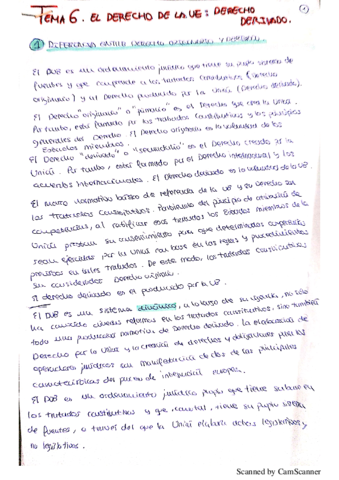 TEMA 6. EL DERECHO DE LA UE: DERECHO
DERIVADO.
1 DIFERENCIA ENTRE DERECHO ORIGINARIO Y DERIVADO.
El DUE es un ordenamiento jurídico que tiene su propio sistema de
fuentes y que comprende a los tratados constitutivos (derecho
originario) y al derecho producido por la Unión (derecho derivado).
El Derecho "originario" o "primario" es el Derecho que crea la Unión.
Por tanto, está formado por los tratados constitutivos y los principios
generales del Derecho. El Derecho originario es la voluntad de los
Estados miembros.
El Derecho "derivado" o "secundario" es el Derecho creado por la
Unión. Por tanto, está formado por el Derecho institucional y los
acuerdos internacionales. El Derecho derivado es la voluntad de la UE.
El marco normativo básico de referencia de la UE y su Derecho son
los tratados constitutivos. Partiendo del principio de atribución de
competencias, al ratificar esos tratados los Estados miembros de la
Unión prestan su consentimiento para que determinadas competencias
sean ejercidas por la Unión con base en las reglas y procedimientos
previstos en tales tratados. De este modo, los tratados constitutivos
son considerados Derecho originario.
El derecho derivado es el producido por la UE.
El DUE es un sistema dinámico, a lo largo de su vigencia, no sólo
ha conocido diversas reformas en los tratados constitutivos, sino también
toda una producción normativa de derecho derivado. La elaboración de
Derecho por la Unión y la creación de derechos y obligaciones para los
operadores jurídicos son manifestación de dos de las principales
características del proceso de integración europea.
El DUE es un ordenamiento jurídico propio que tiene su base en
los tratados constitutivos y que, como tal, tiene su propio sistema
de fuentes, a través del que la Unión elabora actos legislativos y
no legislativos.
Scanned by CamScanner